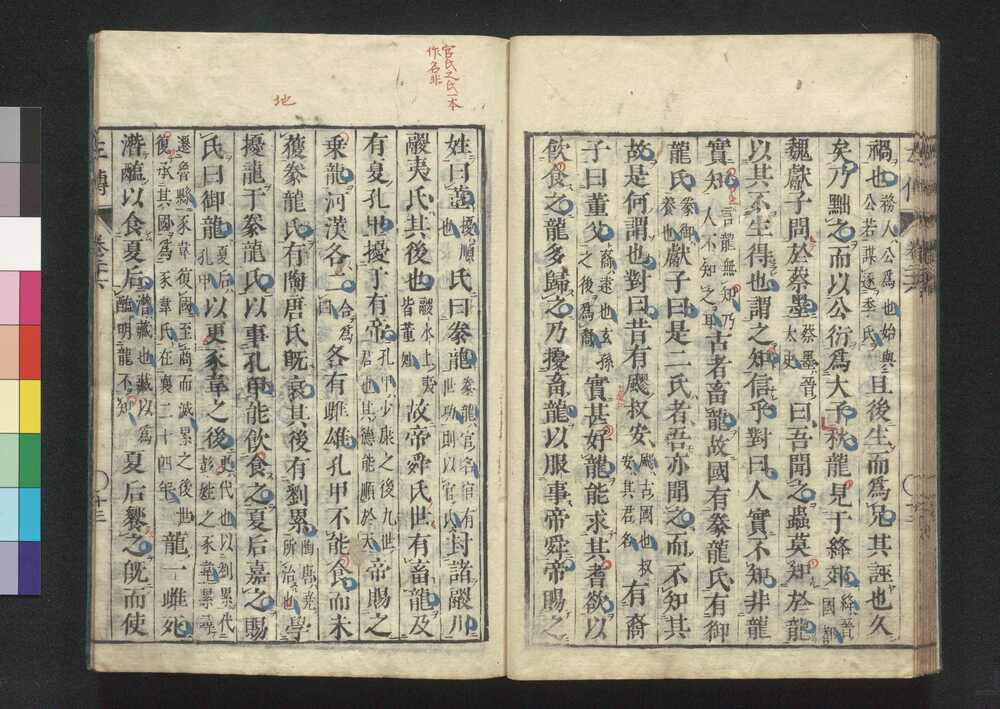 禍也務人公爲也始與公若謀逐季氏且後生而爲兄其誣也久
矣乃黜之而以公衍爲大子秋龍見于絳郊絳晉國都
魏獻子問於蔡墨蔡墨晉太史曰吾聞之蟲莫知於龍
以其不生得也謂之知信乎對曰人實不知非龍
實知言龍無知乃人不知之耳古者畜龍故國有豢龍氏有御
龍氏豢御養也獻子曰是二氏者吾亦聞之而不知其
故是何謂也對曰昔有飂叔安飂古國也叔安其君名有裔
子曰董父裔遠也玄孫之後爲裔實甚好龍能求其耆欲以
飲食之龍多歸之乃擾畜龍以服事帝舜帝賜之
官氏之氏一本
作名非
姓曰董擾順也氏曰豢龍豢龍官名官有世功則以官氏封諸鬷川
鬷夷氏其後也鬷水上夷皆董姓故帝舜氏世有畜龍及
有夏孔甲擾于有帝孔甲少康之後九世君也其德能順於天帝賜之
乘龍河漢各二合爲四各有雌雄孔甲不能食而未
地
獲豢龍氏有陶唐氏旣衰其後有劉累陶唐堯所治也學
擾龍于豢龍氏以事孔甲能飮食之夏后嘉之賜
氏曰御龍夏后孔甲以更豕韋之後更代也以劉累代彭姓之豕韋累尋
遷魯縣豕韋復國至商而滅累之後世復承其國爲豕韋氏在襄二十四年龍一雌死
潛醢以食夏后潛藏也藏以爲醢明龍不知夏后饗之旣而使
左傳
卷二十六
十三